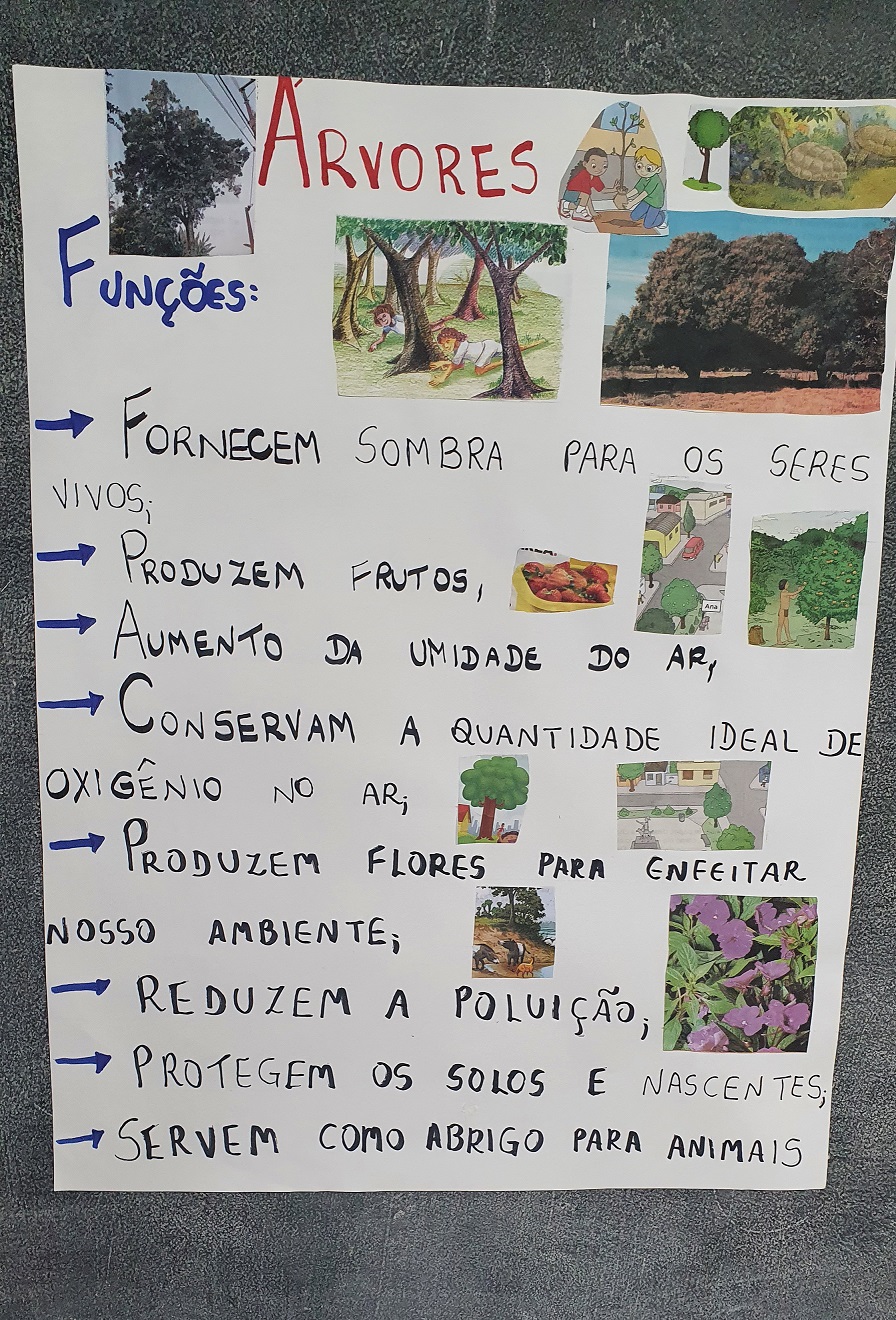 ÁRVORES
FUNÇÕES:
→ FORNECEM SOMBRA PARA OS SERES
VIVOS;
→ PRODUZEM FRUTOS,
Ana
→ AUMENTO DA UMIDADE DO AR,
→ CONSERVAM A QUANTIDADE IDEAL DE
OXIGÊNIO NO AR;
→ PRODUZEM FLORES PARA ENFEITAR
NOSSO AMBIENTE;
→ REDUZEM A POLUIÇÃO;
→ PROTEGEM OS SOLOS E NASCENTES;
→ SERVEM COMO ABRIGO PARA ANIMAIS